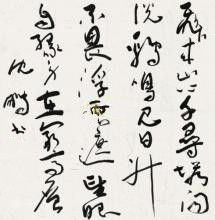 飛来山上千尋塔聞
説鷄鳴見日升
不畏浮雲遮望眼
自緣身在最高層
沈鵬书